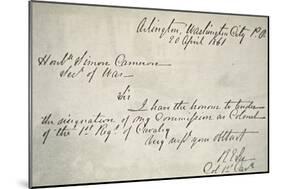 Arlington, Washington City P.O
20 April 1861
Honble Simon Cameron
Secy of War
Sir
I have the honour to tender
the resignation of my Commission as Colonel
of the 1st Regt of Cavalry
Very respy your Obt Servt
R E Lee
Col 1st Cavy